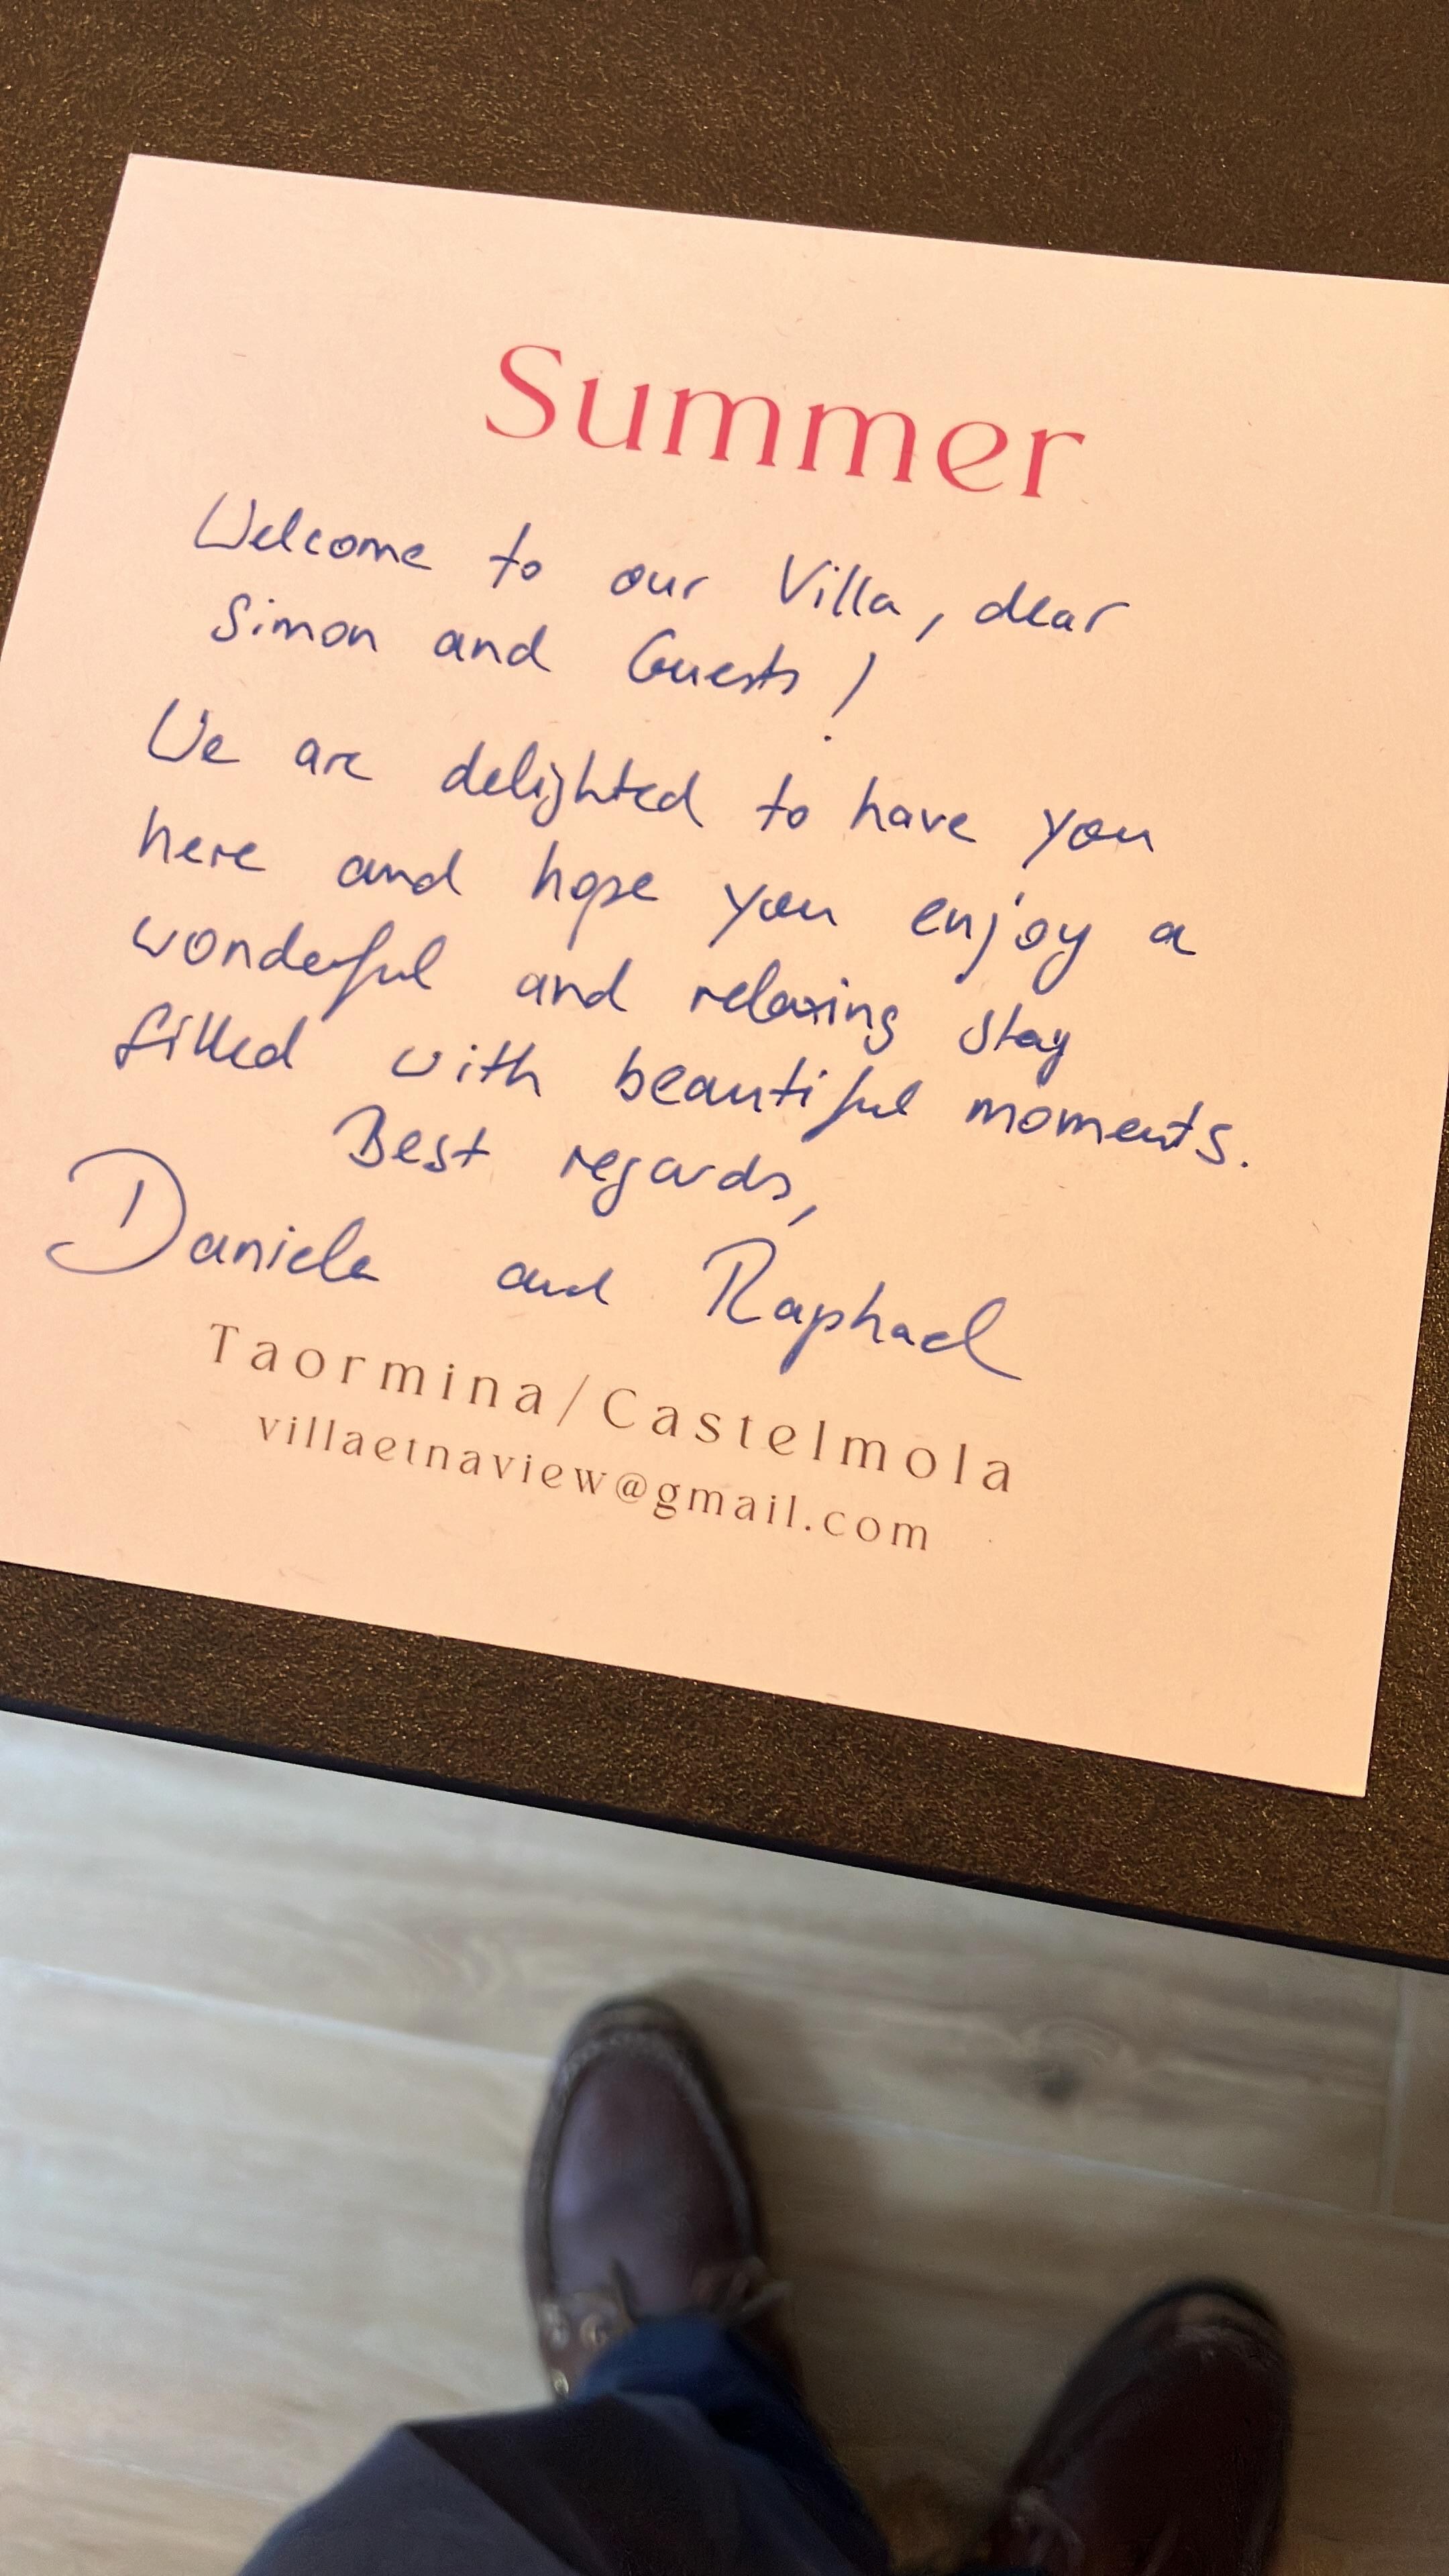 Summer
Welcome to our Villa, dear
Simon and Guests!
We are delighted to have you
here and hope you enjoy a
wonderful and relaxing stay
filled with beautiful moments.
Best regards,
Daniela and Raphael
Taormina/Castelmola
villaetnaview@gmail.com